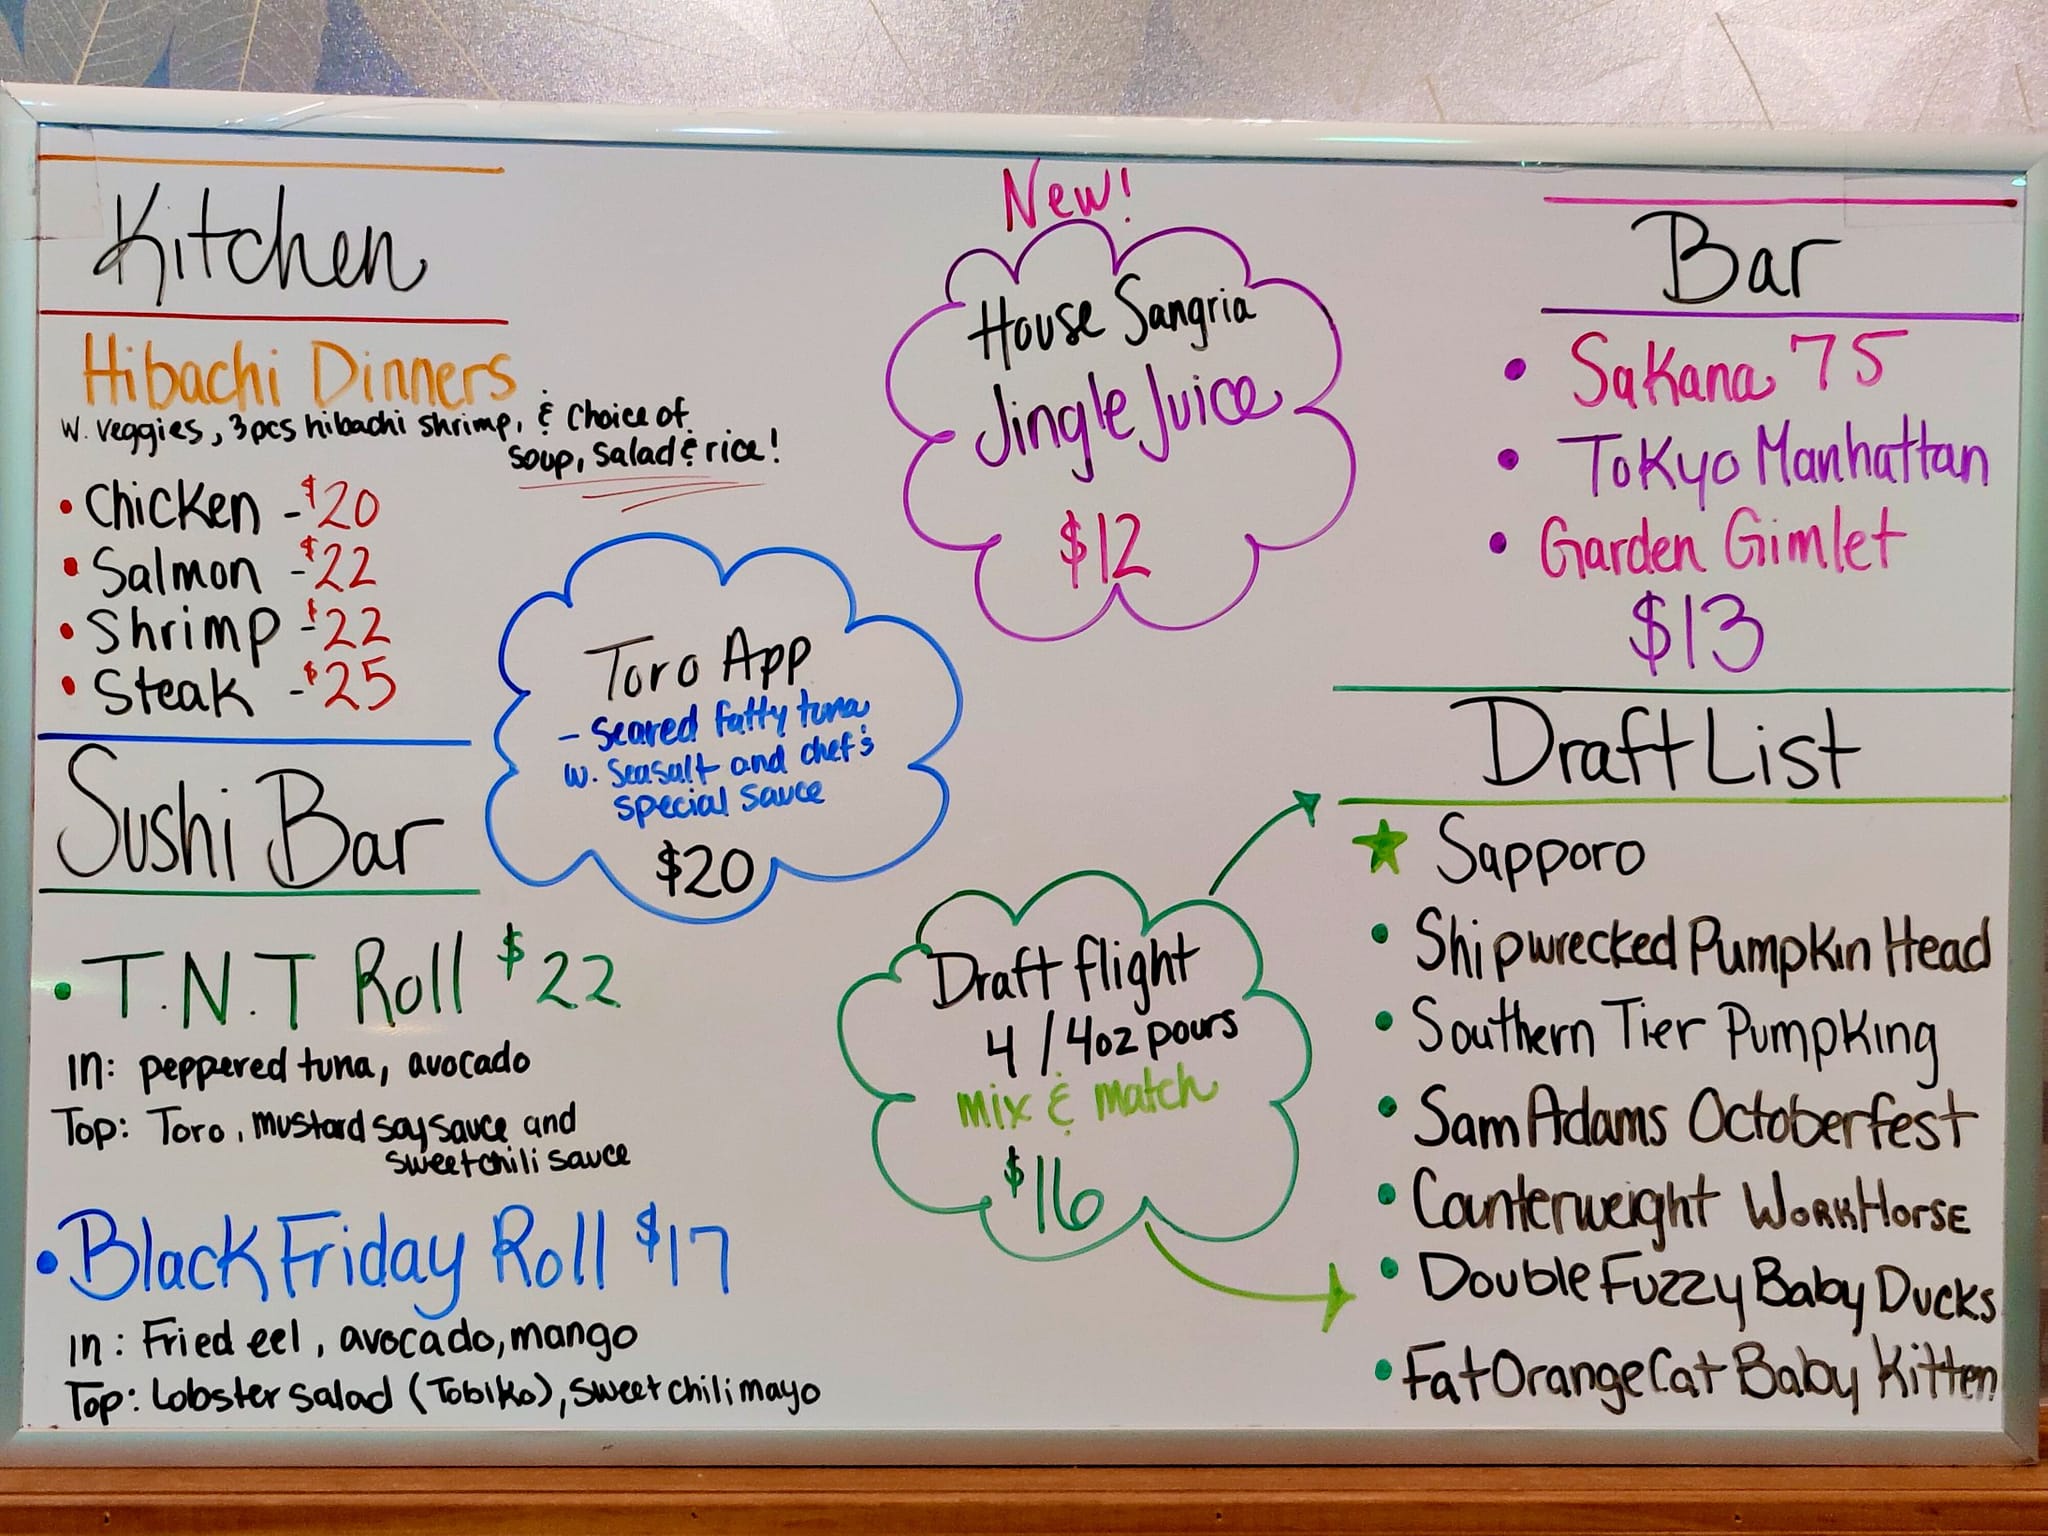 Kitchen
Hibachi Dinners
w. veggies, 3pcs hibachi shrimp, & choice of
soup, salad & rice!
• Chicken - $20
• Salmon - $22
• Shrimp - $22
• Steak - $25
Sushi Bar
• T.N.T Roll $22
In: peppered tuna, avocado
Top: Toro, mustard soy sauce and
sweet chili sauce
• Black Friday Roll $17
In: Fried eel, avocado, mango
Top: lobster salad (Tobiko), sweet chili mayo
Toro App
- Seared fatty tuna
w. Seasalt and chef's
special sauce
$20
New!
House Sangria
Jingle Juice
$12
Draft flight
4 / 4oz pours
mix & match
$16
Bar
• Sakana 75
• Tokyo Manhattan
• Garden Gimlet
$13
Draft List
★ Sapporo
• Shipwrecked Pumpkin Head
• Southern Tier Pumpking
• Sam Adams Octoberfest
• Counterweight WorkHorse
• Double Fuzzy Baby Ducks
• Fat Orange Cat Baby Kitten